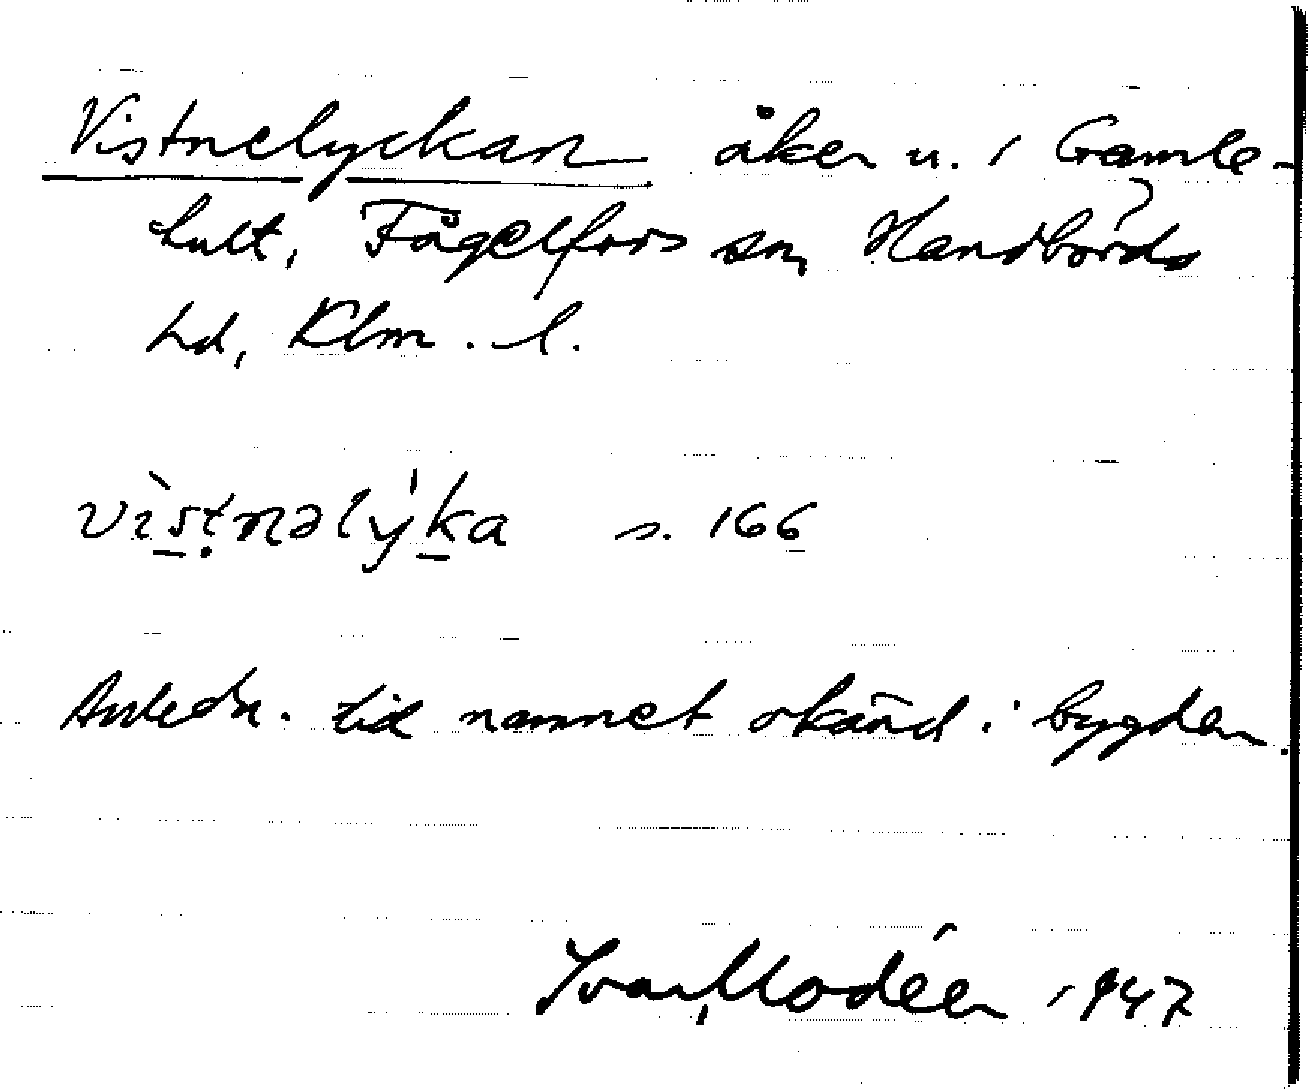 Vistnelyckan åker u. i Gamle-
hult, Fågelfors sn, Handbörds
hd, Klm. l.
vìstnəly̍ka s. 166
Anledn. till namnet okänd i bygden.
Ivar Modéer 1947